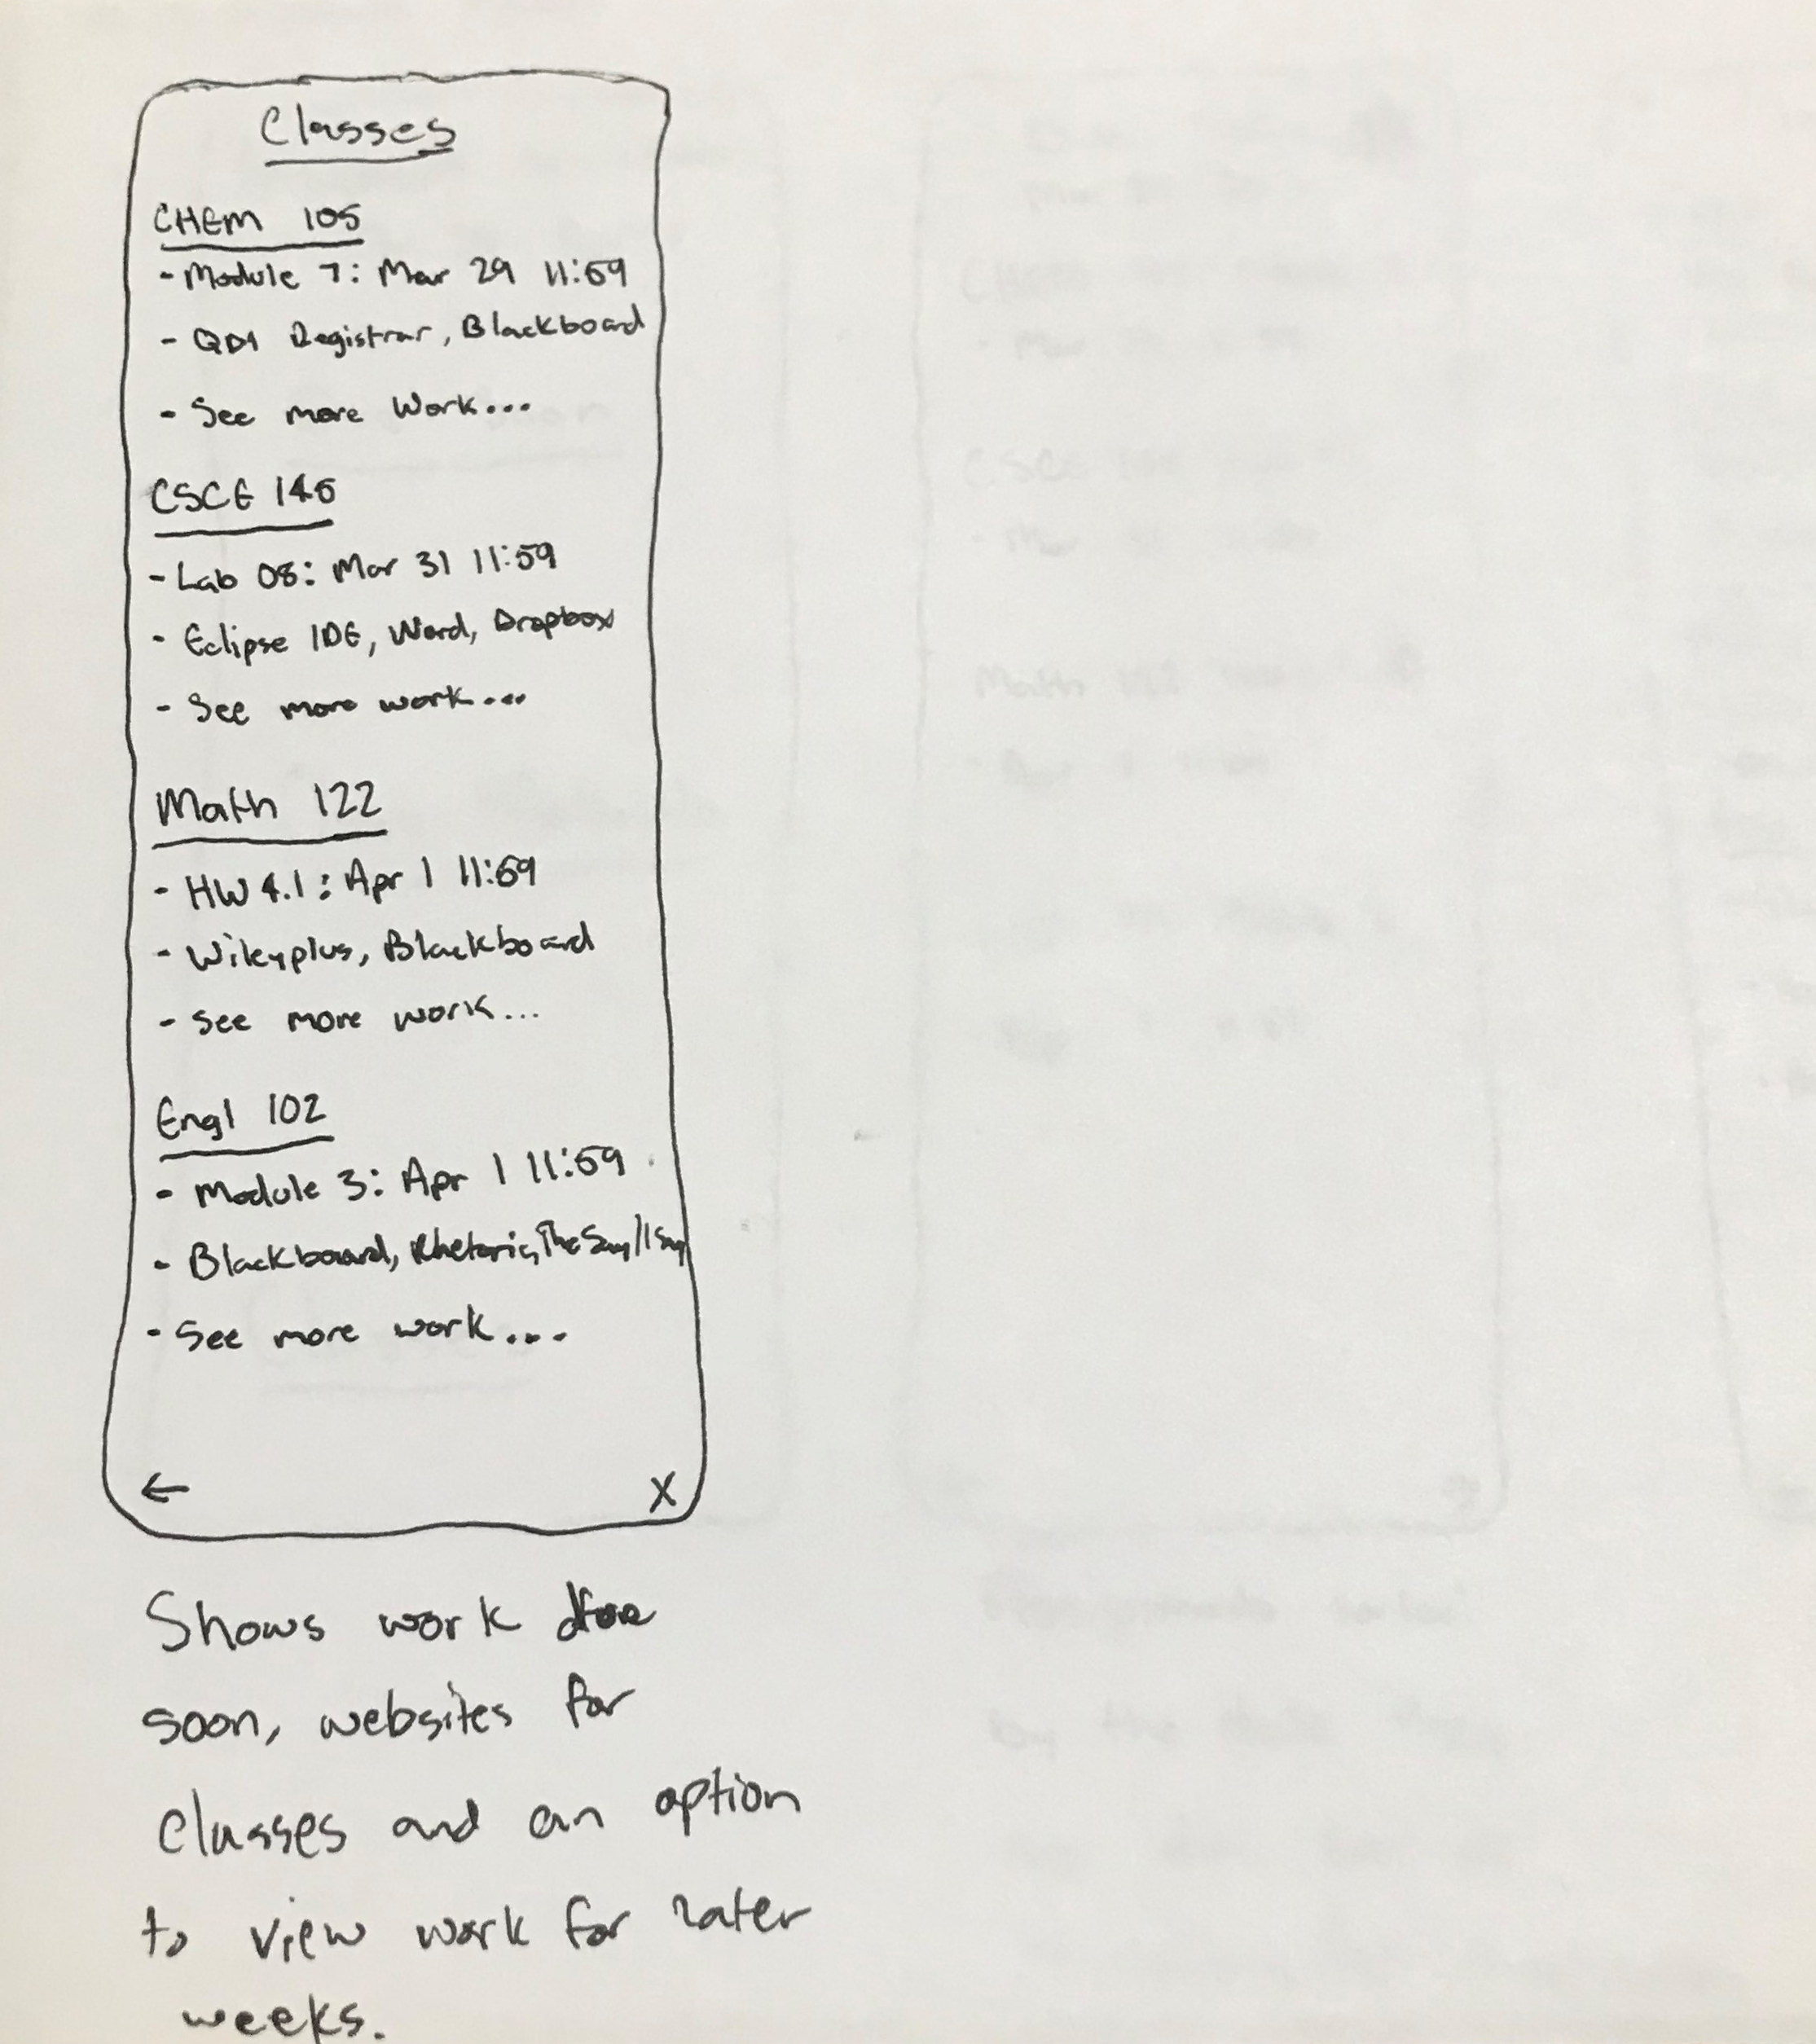 Classes
CHEM 105
- Module 7: Mar 29 11:59
- Registrar, Blackboard
- See more Work...
CSCE 145
- Lab 08: Mar 31 11:59
- Eclipse IDE, Word, Dropbox
- See more work...
Math 122
- HW 4.1: Apr 1 11:59
- Wileyplus, Blackboard
- See more work...
Engl 102
- Module 3: Apr 1 11:59
- Blackboard, Rhetoric, Say/I Say
- See more work....
← X
Shows work
soon, websites for
classes and an option
to view work for later
weeks.